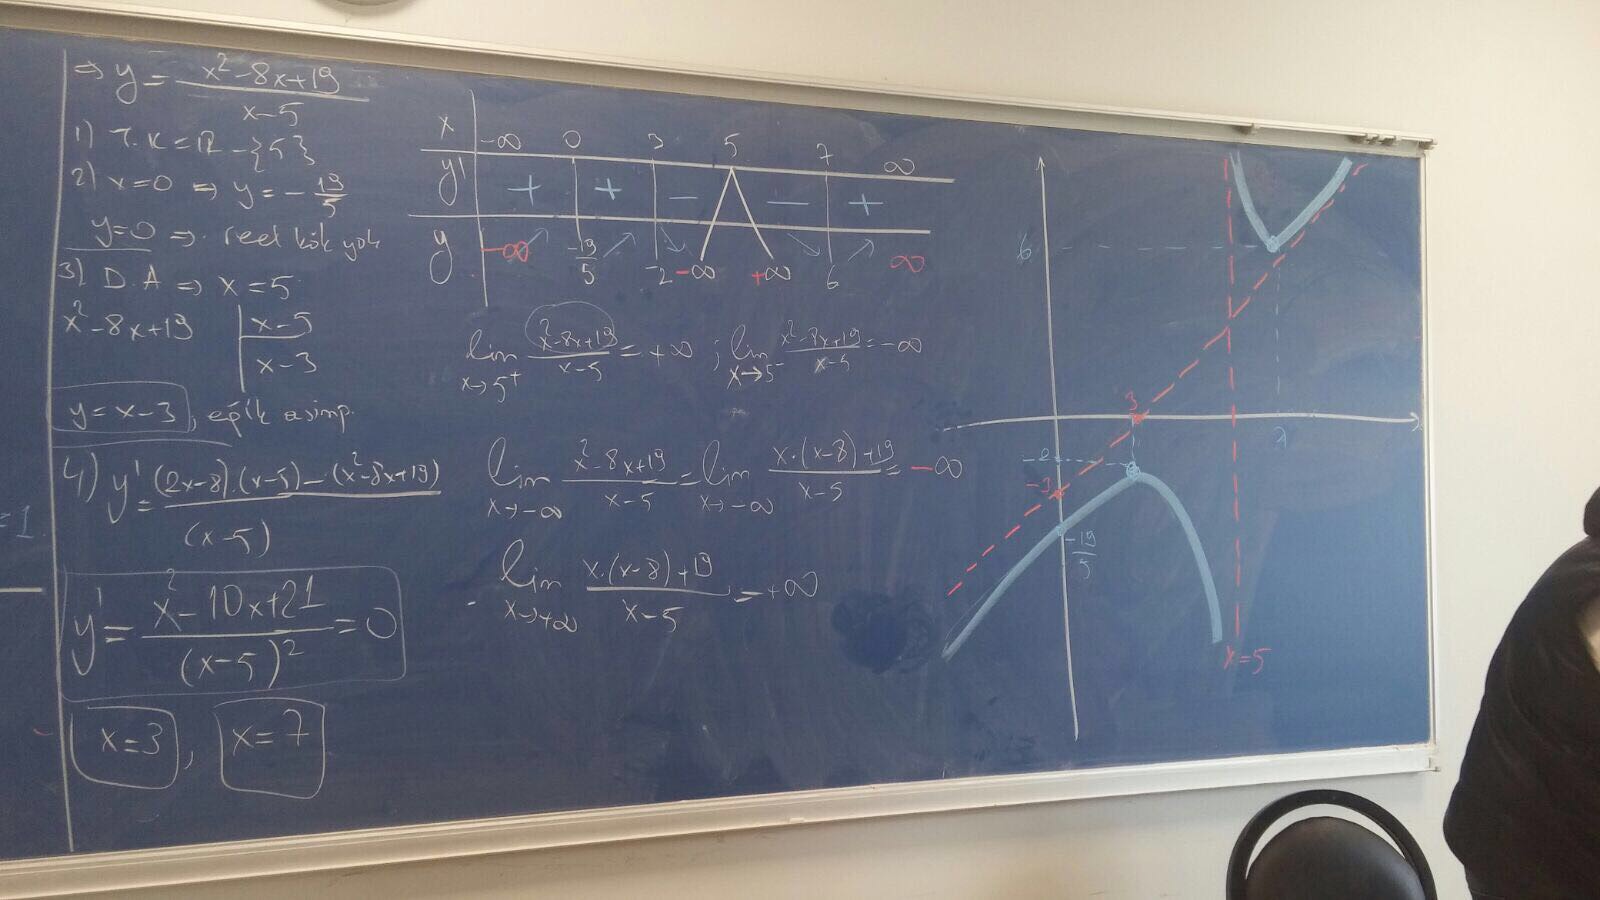 ⇒ y = (x²-8x+19)/(x-5)
1) T.K = R - {5}
2) x=0 ⇒ y = -19/5
y=0 ⇒ reel kök yok
3) D.A ⇒ x=5
x²-8x+19 | x-5
x-3
y = x-3, eğik asimp.
4) y' = ((2x-8).(x-5)-(x²-8x+19))/(x-5)
y' = (x²-10x+21)/(x-5)² = 0
x=3, x=7
=1
x -∞ 0 3 5 7 ∞
y' + + - - +
y -∞ ↗ -19/5 ↗ -2 ↘ -∞ +∞ ↘ 6 ↗ ∞
lim x→5⁺ (x²-8x+19)/(x-5) = +∞ ; lim x→5⁻ (x²-8x+19)/(x-5) = -∞
lim x→-∞ (x²-8x+19)/(x-5) = lim x→-∞ (x.(x-8)+19)/(x-5) = -∞
lim x→+∞ (x.(x-8)+19)/(x-5) = +∞
6
3
7
-2
-3
-19/5
x=5